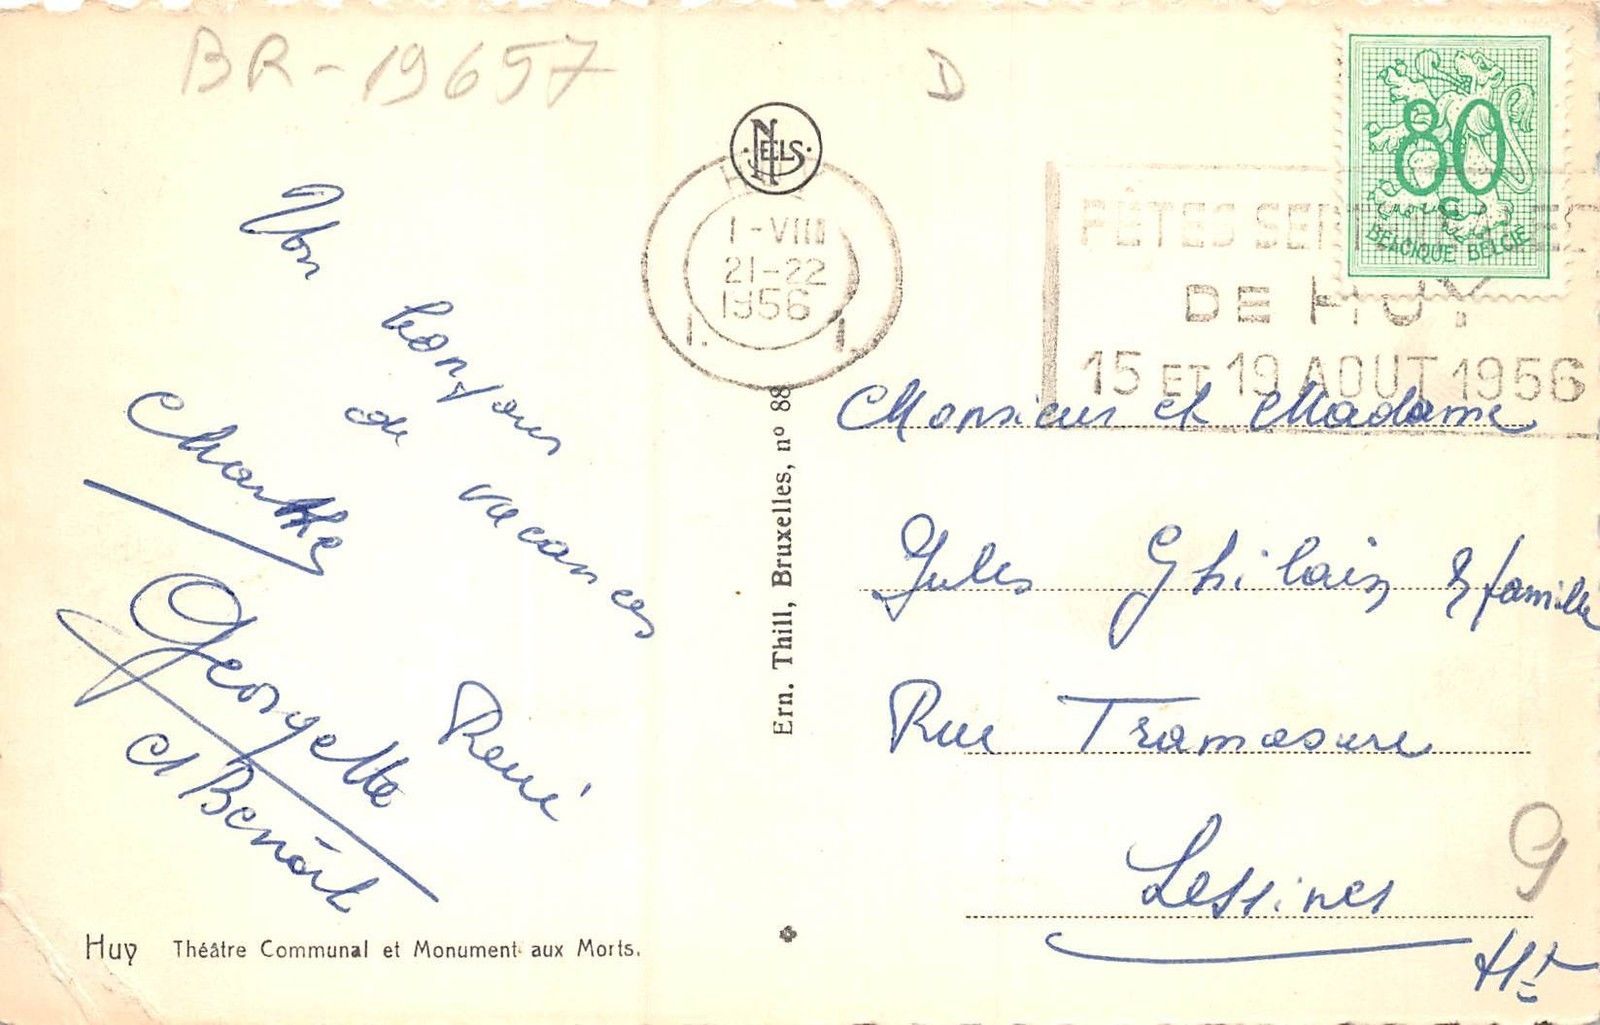 BR-19657
D
NELS
80
BELGIQUE BELGIE
HUY
1-VIII
21-22
1956
1. 1.
FÊTES SEPTENNALES
DE HUY
15 ET 19 AOUT 1956
Un
bonjour
de
vacances
Marthe
Georgette
René
et Benoît
Ern. Thill, Bruxelles, nº 88
Monsieur et Madame
Jules Ghilain & famille
Rue Tramasure
Lessines
Ht
9
Huy Théâtre Communal et Monument aux Morts.